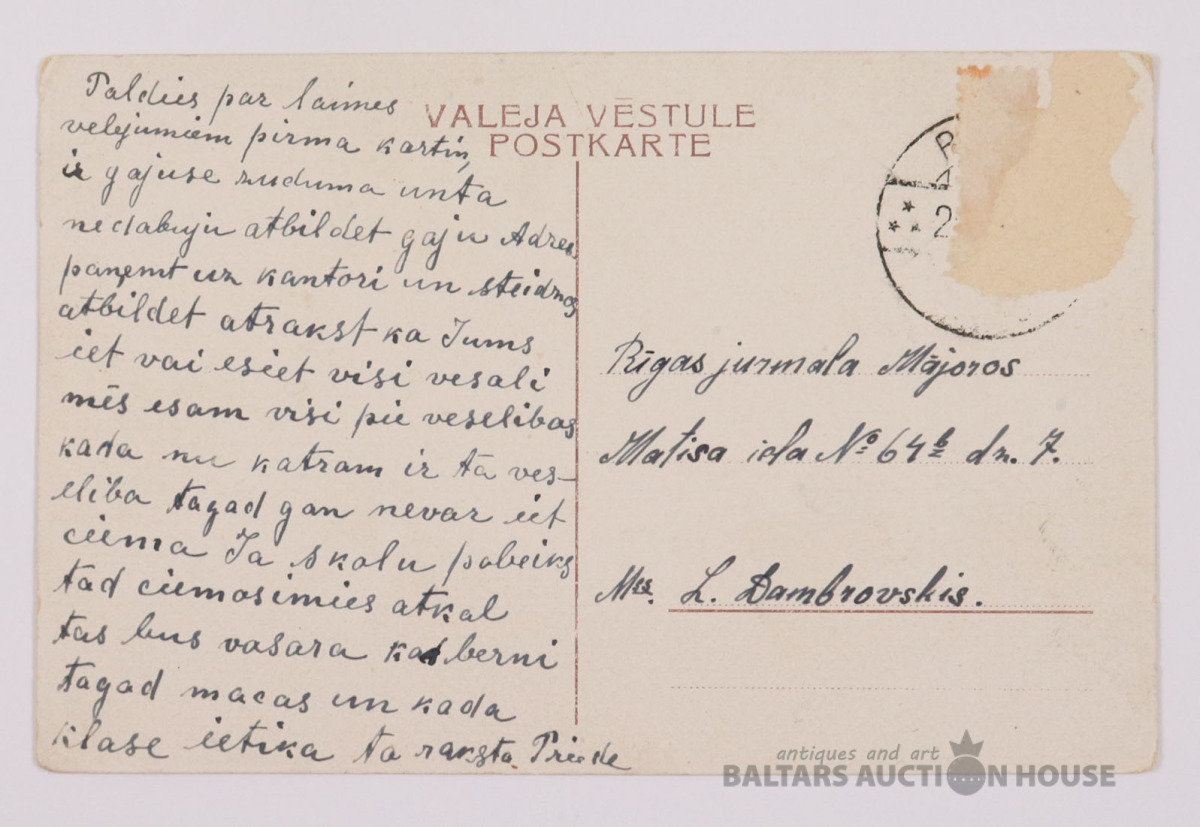 Paldies par laimes
velejumiem pirma kartiņ
ir gajuse zuduma unta
nedabuju atbildet gaju Adres
paņemt uz kantori un steidzos
atbildet atrakst ka Jums
iet vai esiet visi vesali
mēs esam visi pie veselibas
kada nu katram ir ta ves-
eliba tagad gan nevar iet
ciema Ja skolu pabeiks
tad ciemosimies atkal
tas bus vasara kad berni
tagad macas un kada
klase ietika ta raksta Priede
VALEJA VĒSTULE
POSTKARTE
R
2
Rīgas jurmala Mājoros
Matisa ida No 64b dz. 7.
Mss. L. Dambrovskis.
antiques and art
BALTARS AUCTION HOUSE